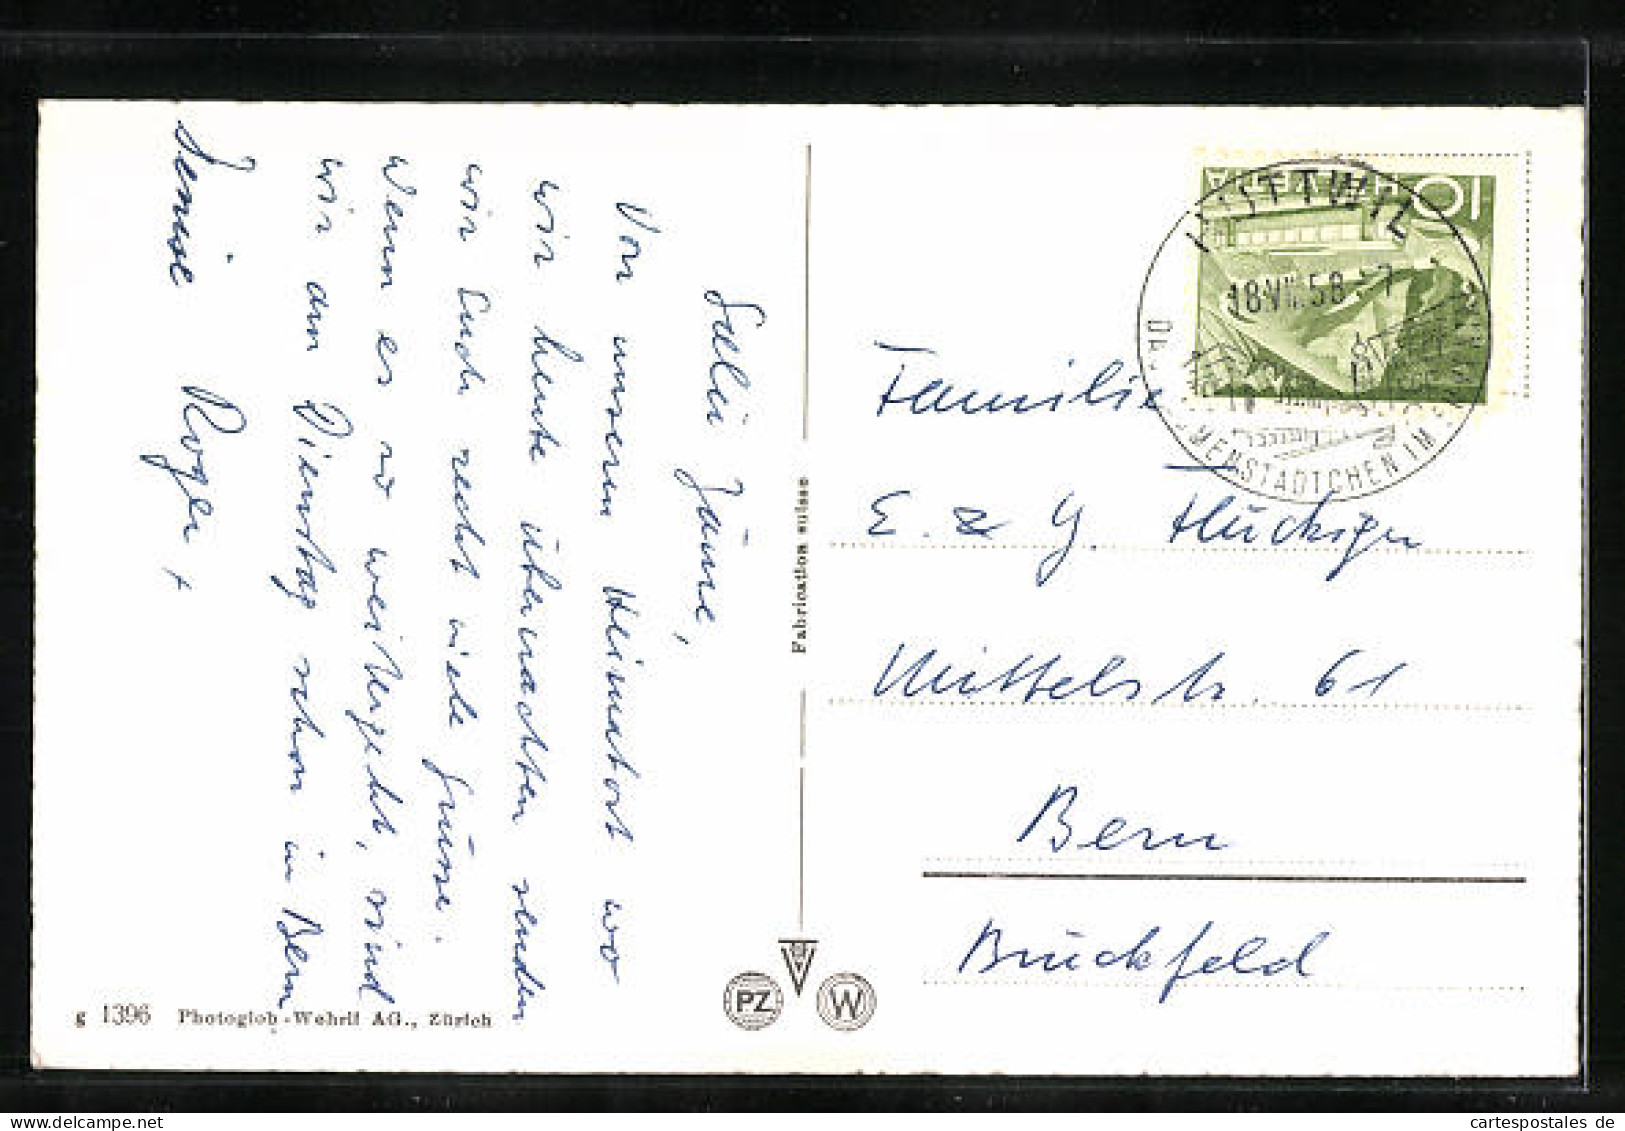 Salü Jäune,
Von unserem Heimatort wo
wir heute übernachten senden
wir Euch recht viele Grüsse.
Wenn es so weitergeht, sind
wir am Dienstag schon in Bern
Roger +
g 1396 Photoglob-Wehrli AG., Zürich
Fabrication suisse
PZ
W
HUTTWIL
18.VII.58 - 7
BLUMENSTÄDTCHEN IM
HELVETIA
10
Familie
E. & G. Flückiger
Mittelstr. 61
Bern
Brückfeld
cartespostales de